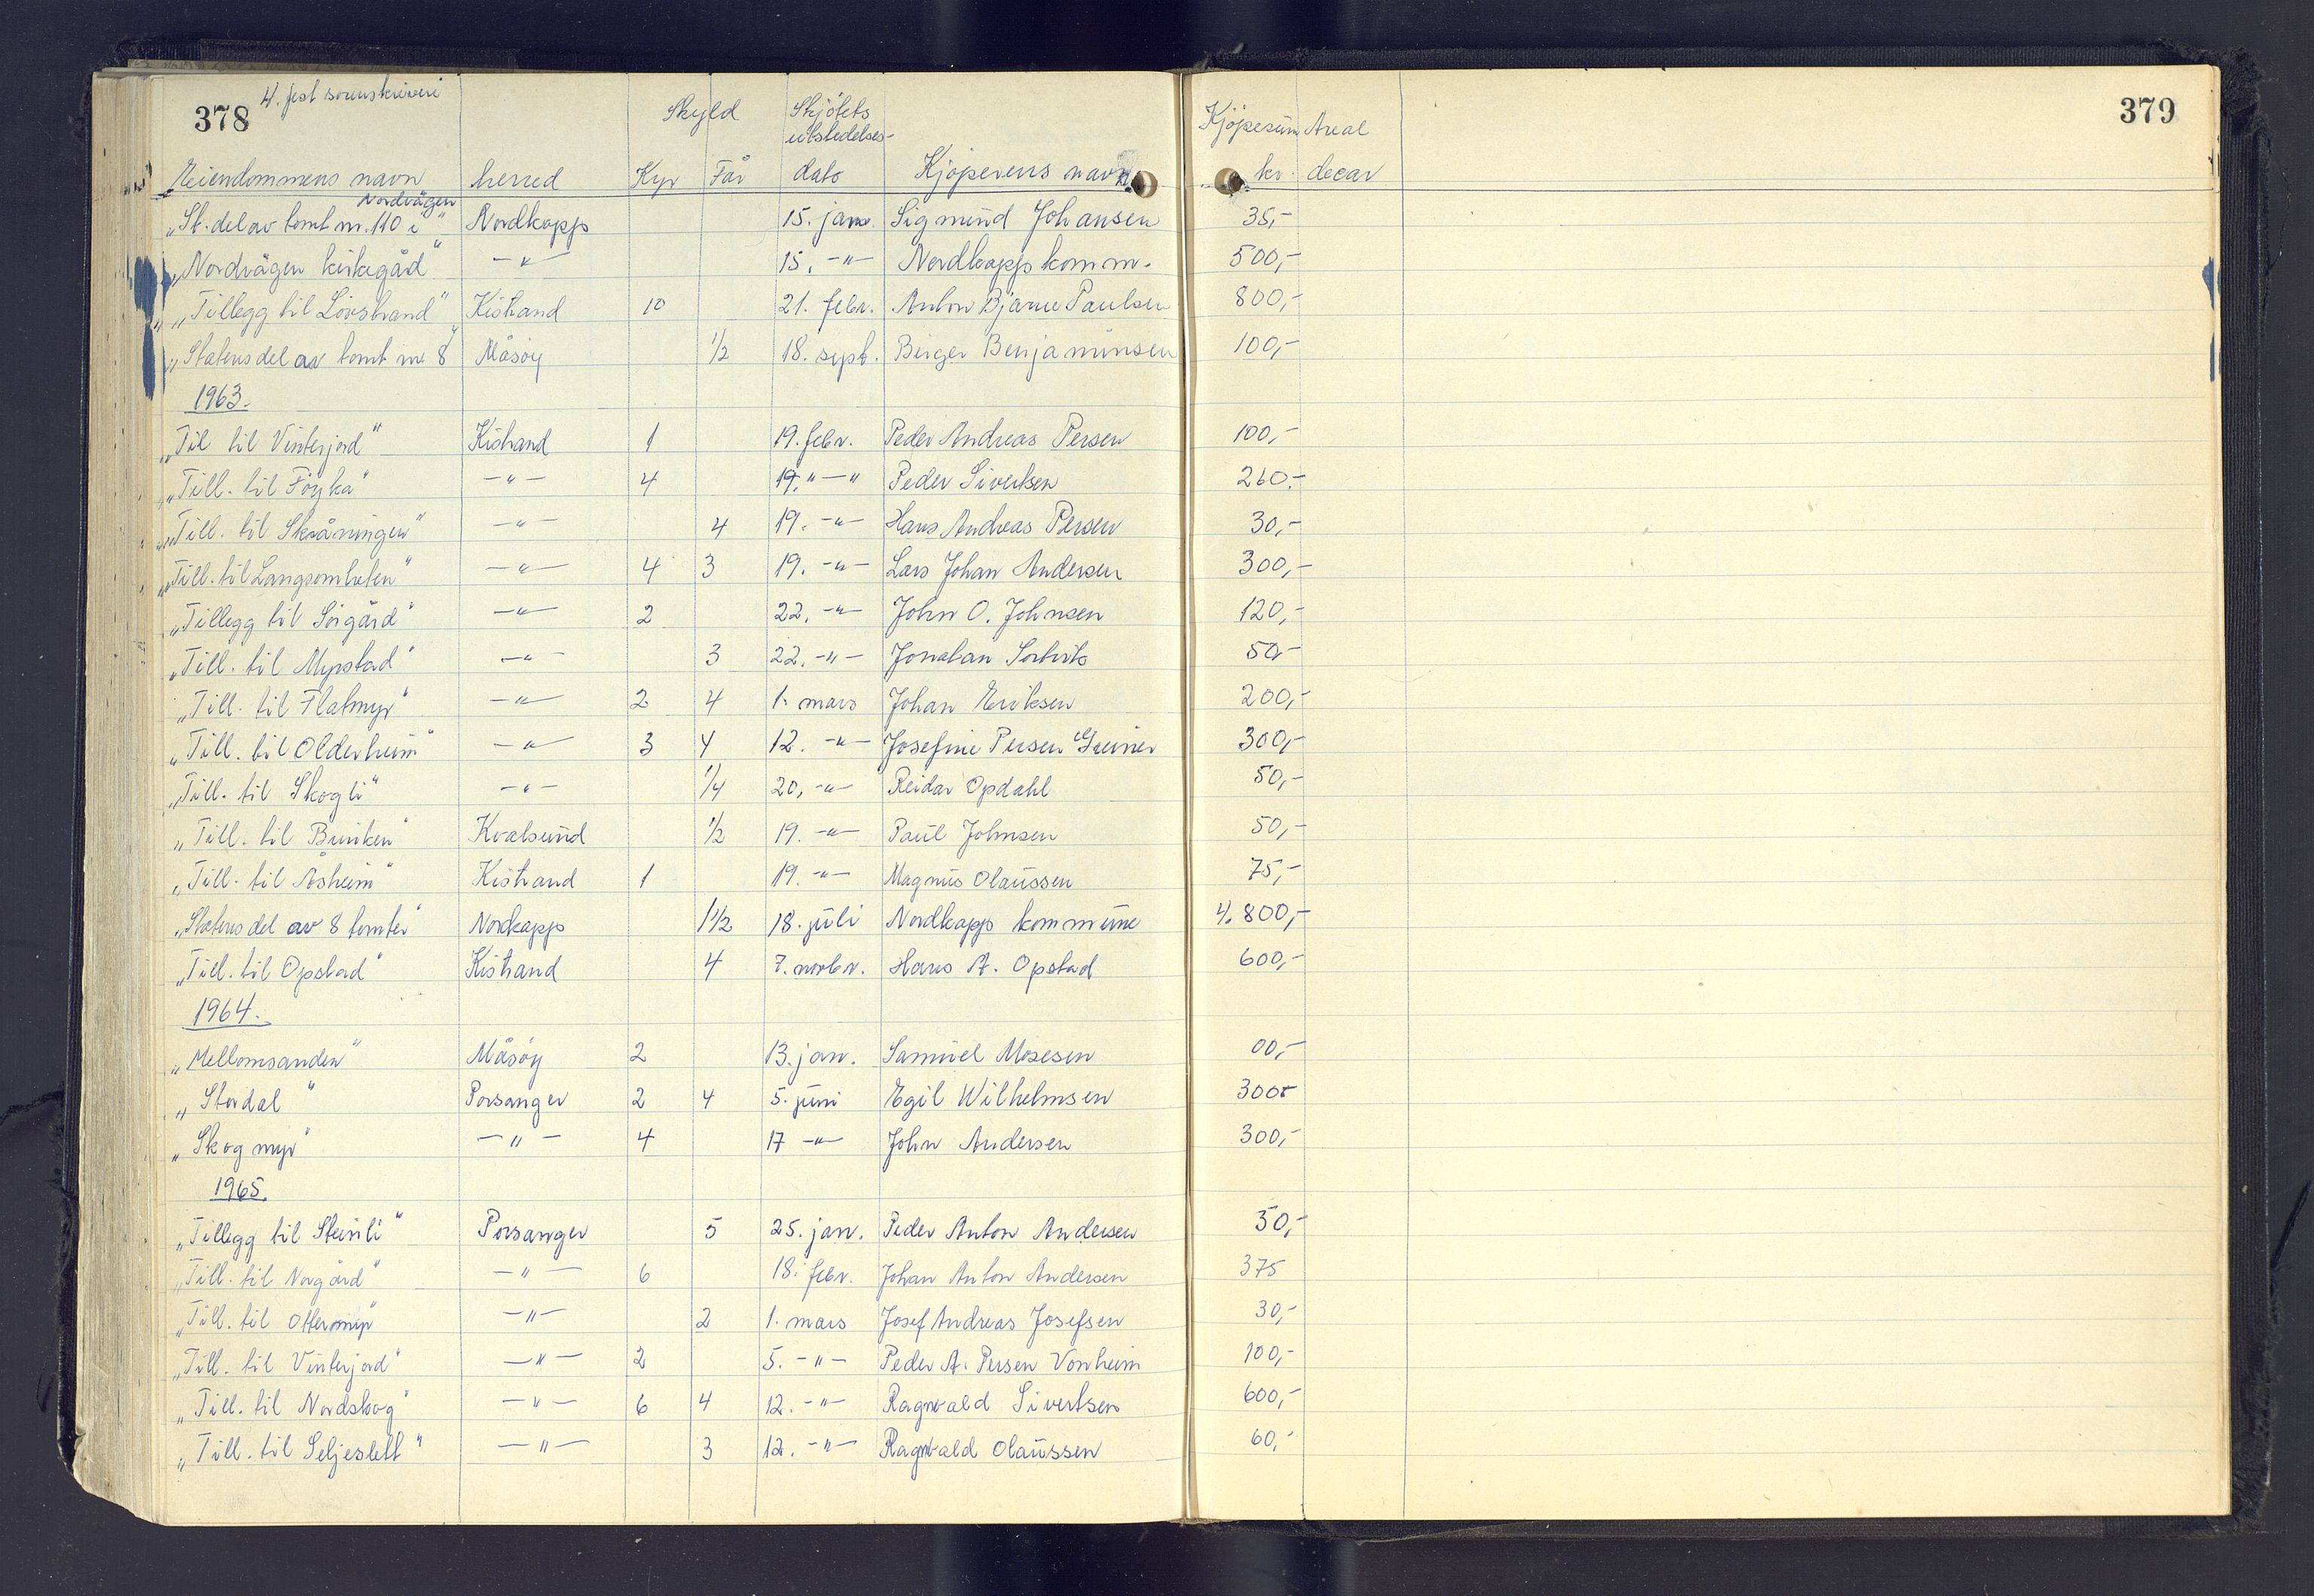 378 4. jost sorenskriveri 379
Skyld Skjötets utstedelses- Kjöpesum Areal
Eiendommens navn herred Kyr Får dato Kjöperens navn kr. decar
Nordvågen
„St. del av tomt nr. 110 i" Nordkapp 15. jan. Sigmund Johansen 35,-
„Nordvågen kirkegård" -"- 15. -"- Nordkapp komm. 500,-
„Tillegg til Lövstrand" Kistrand 10 21. febr. Anton Bjarne Paulsen 800,-
„Statens del av tomt nr 8" Måsöy 1/2 18. sept. Berger Benjaminsen 100,-
1963.
„Til til Vinterjord" Kistrand 1 19. febr. Peder Andreas Persen 100,-
„Till. til Föyka" -"- 4 19. "-" Peder Sivertsen 260.-
„Till. til Skråningen" -"- 4 19. -"- Hans Andreas Persen 30,-
„Till. til Langsomheten" -"- 4 3 19. -"- Lars Johan Andersen 300,-
„Tillegg til Sörgård" -"- 2 22. -"- John O. Johnsen 120,-
„Till. til Myrstad" -"- 3 22. -"- Jonatan 50-
„Till. til Flatmyr" -"- 2 4 1. mars Johan Eriksen 200,-
„Till. til Olderheim" -"- 3 4 12. -"- Josefine Persen Greiner 300,-
„Till. til Skogli" -"- 1/4 20, -"- Reidar Opdahl 50,-
„Till. til Bunken" Kvalsund 1/2 19. -"- Paul Johnsen 50,-
„Till. til Åsheim" Kistrand 1 19. -"- Magnus Olaussen 75,-
„Statens del av 8 tomter" Nordkapp 1 1/2 18. juli Nordkapp kommune 4.800,-
„Till. til Opstad" Kistrand 4 7. novbr. Hans A. Opstad 600,-
1964.
„Mellomsanden" Måsöy 2 13. jan. Samuel Mosesen 00,-
„Stordal" Porsanger 2 4 5. juni Egil Wilhelmsen 300-
„Skogmyr" -"- 4 17 -"- John Andersen 300,-
1965.
„Tillegg til Steinli" Porsanger 5 25. jan. Peder Anton Andersen 50,-
„Till. til Norgård" -"- 6 18. febr. Johan Anton Andersen 375
„Till. til Ottermyr" -"- 2 1. mars Josef Andreas Josefsen 30,-
„Till. til Vinterjord" -"- 2 5. -"- Peder A. Persen Vonheim 100,-
„Till. til Nordskog" -"- 6 4 12. -"- Ragnvald Sivertsen 600,-
„Till. til Seljeslett" -"- 3 12. -"- Ragnvald Olaussen 60,-